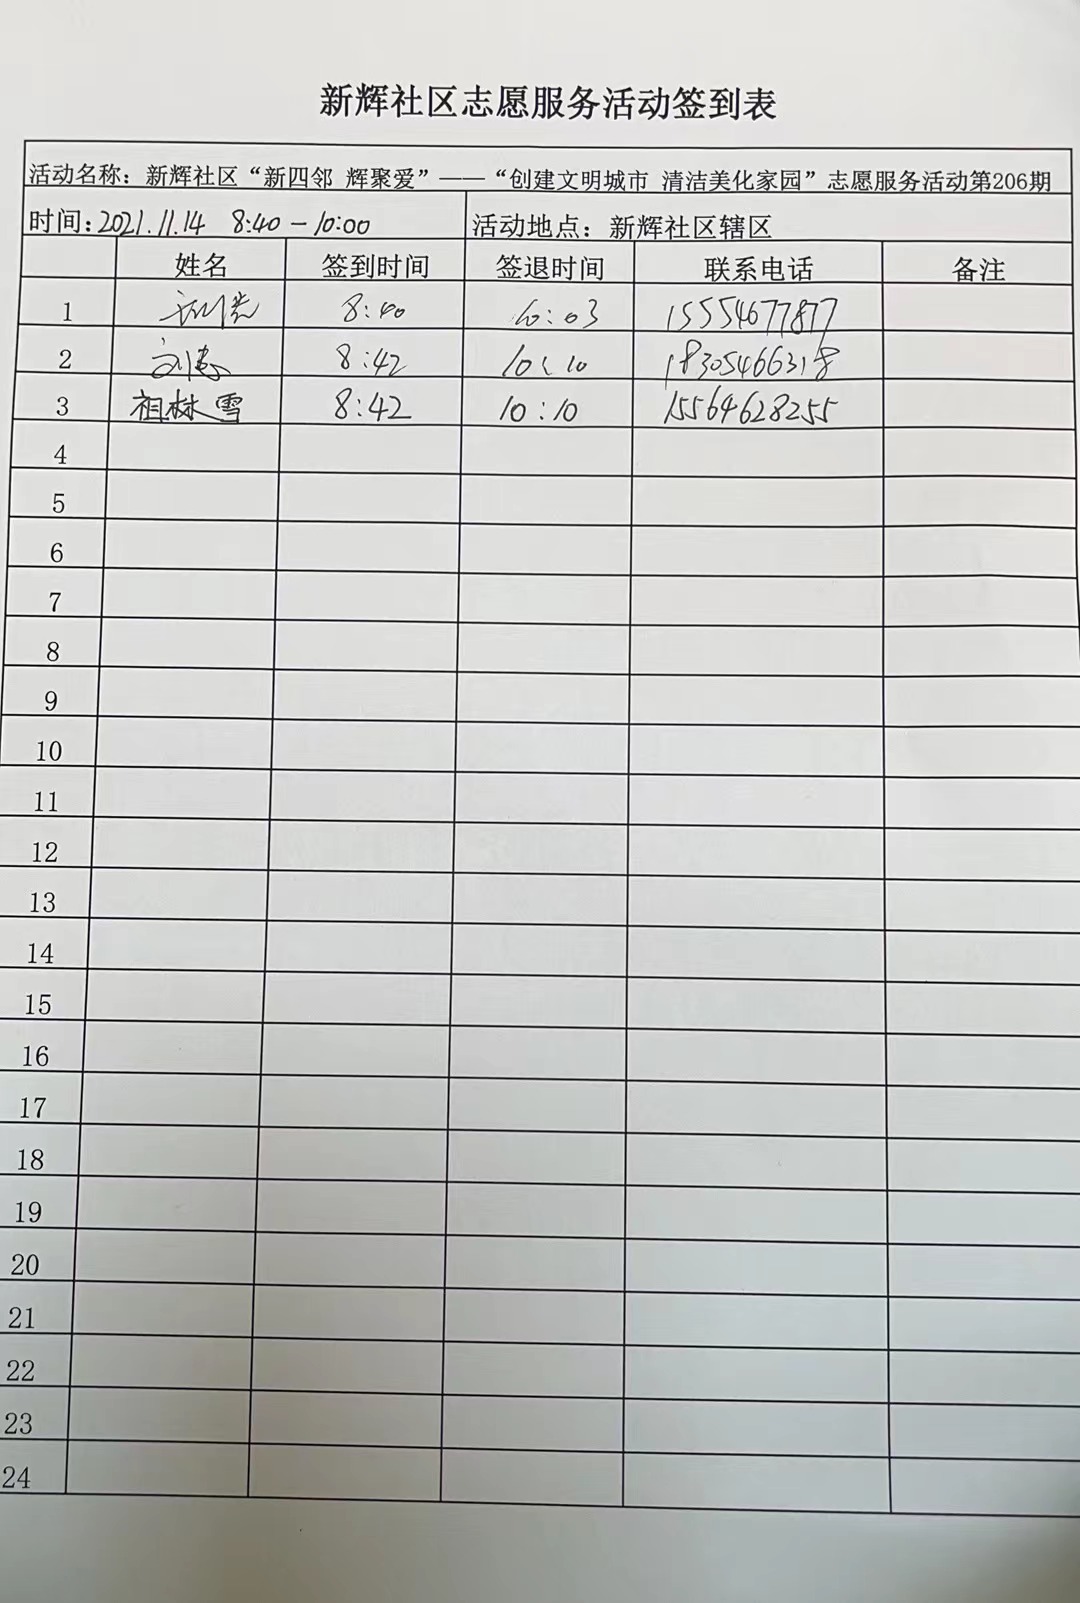 新辉社区志愿服务活动签到表
活动名称：新辉社区“新四邻 辉聚爱”——“创建文明城市 清洁美化家园”志愿服务活动第206期
时间：2021.11.14 8:40-10:00 活动地点：新辉社区辖区
姓名 签到时间 签退时间 联系电话 备注
1 8:40 10:03 15554677877
2 8:42 10:10 18305466318
3 祖林雪 8:42 10:10 15564628255
4
5
6
7
8
9
10
11
12
13
14
15
16
17
18
19
20
21
22
23
24